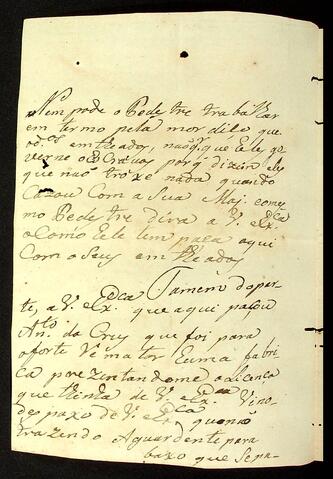 Nem pode o Pedestre trabalhar
em termo pela mordile que
os emteados, não q.r que Ele go
verno os Escravos porq dizem eles
que não troxe nada quando
Cazou Com a Sua Maj. como
mo Pedestre dira a V. Exca
o Como Ele tem paça aqui
Com o Seus emteados
Tamem dou par
te, a V. Exca que aqui paçou
Anto. da Crus que foi para
o forte Ve mator Euma fabri
ca perezentandome a licança
que tinha de V. Exca Vino
despaxo de V. Exca quono
trazendo Aguardente para
baxo que Sepa-